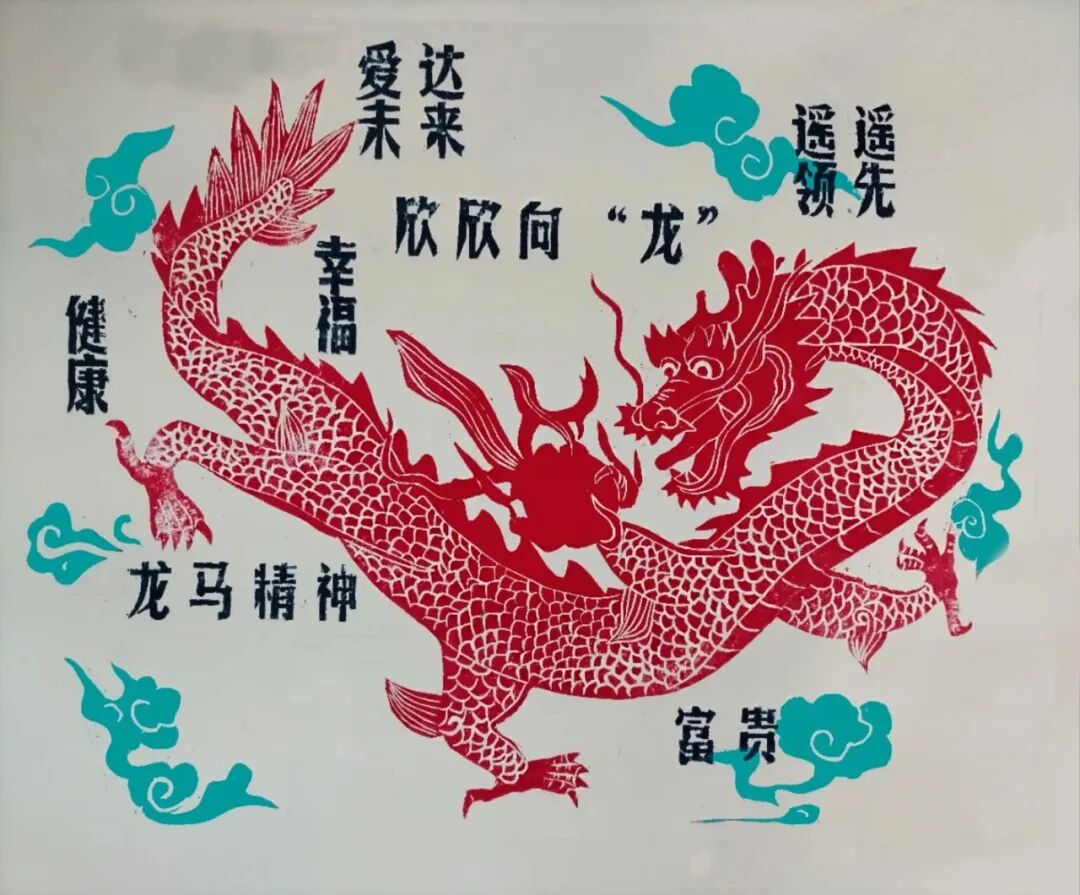 爱达
未来
遥遥
领先
欣欣向“龙”
幸福
健康
龙马精神
富贵